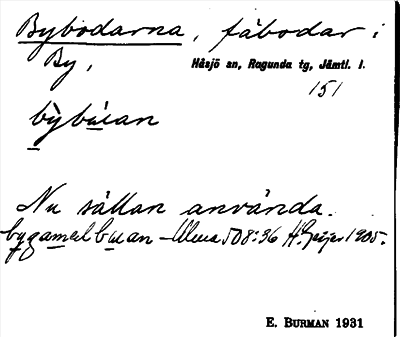 Bybodarna, fäbodar i
By,
Håsjö sn, Ragunda tg, Jämtl. l.
151
bỳbu̠an
Nu sällan använda.
bygamelbuan - 508:36 H. Geijer 1905.
E. BURMAN 1931